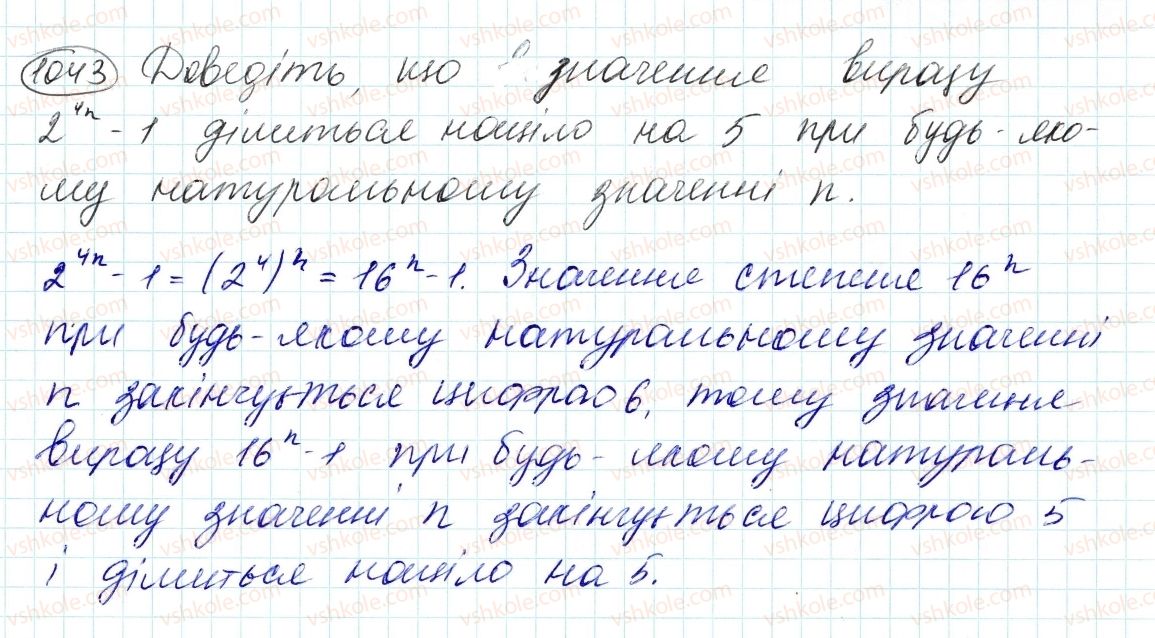 1043 Доведіть, що значення виразу
2^{4n} - 1 ділиться націло на 5 при будь-яко-
му натуральному значенні n.
2^{4n} - 1 = (2^4)^n = 16^n - 1. Значення степеня 16^n
при будь-якому натуральному значенні
n закінчується цифрою 6, тому значення
виразу 16^n - 1 при будь-якому натураль-
ному значенні n закінчується цифрою 5
і ділиться націло на 5.